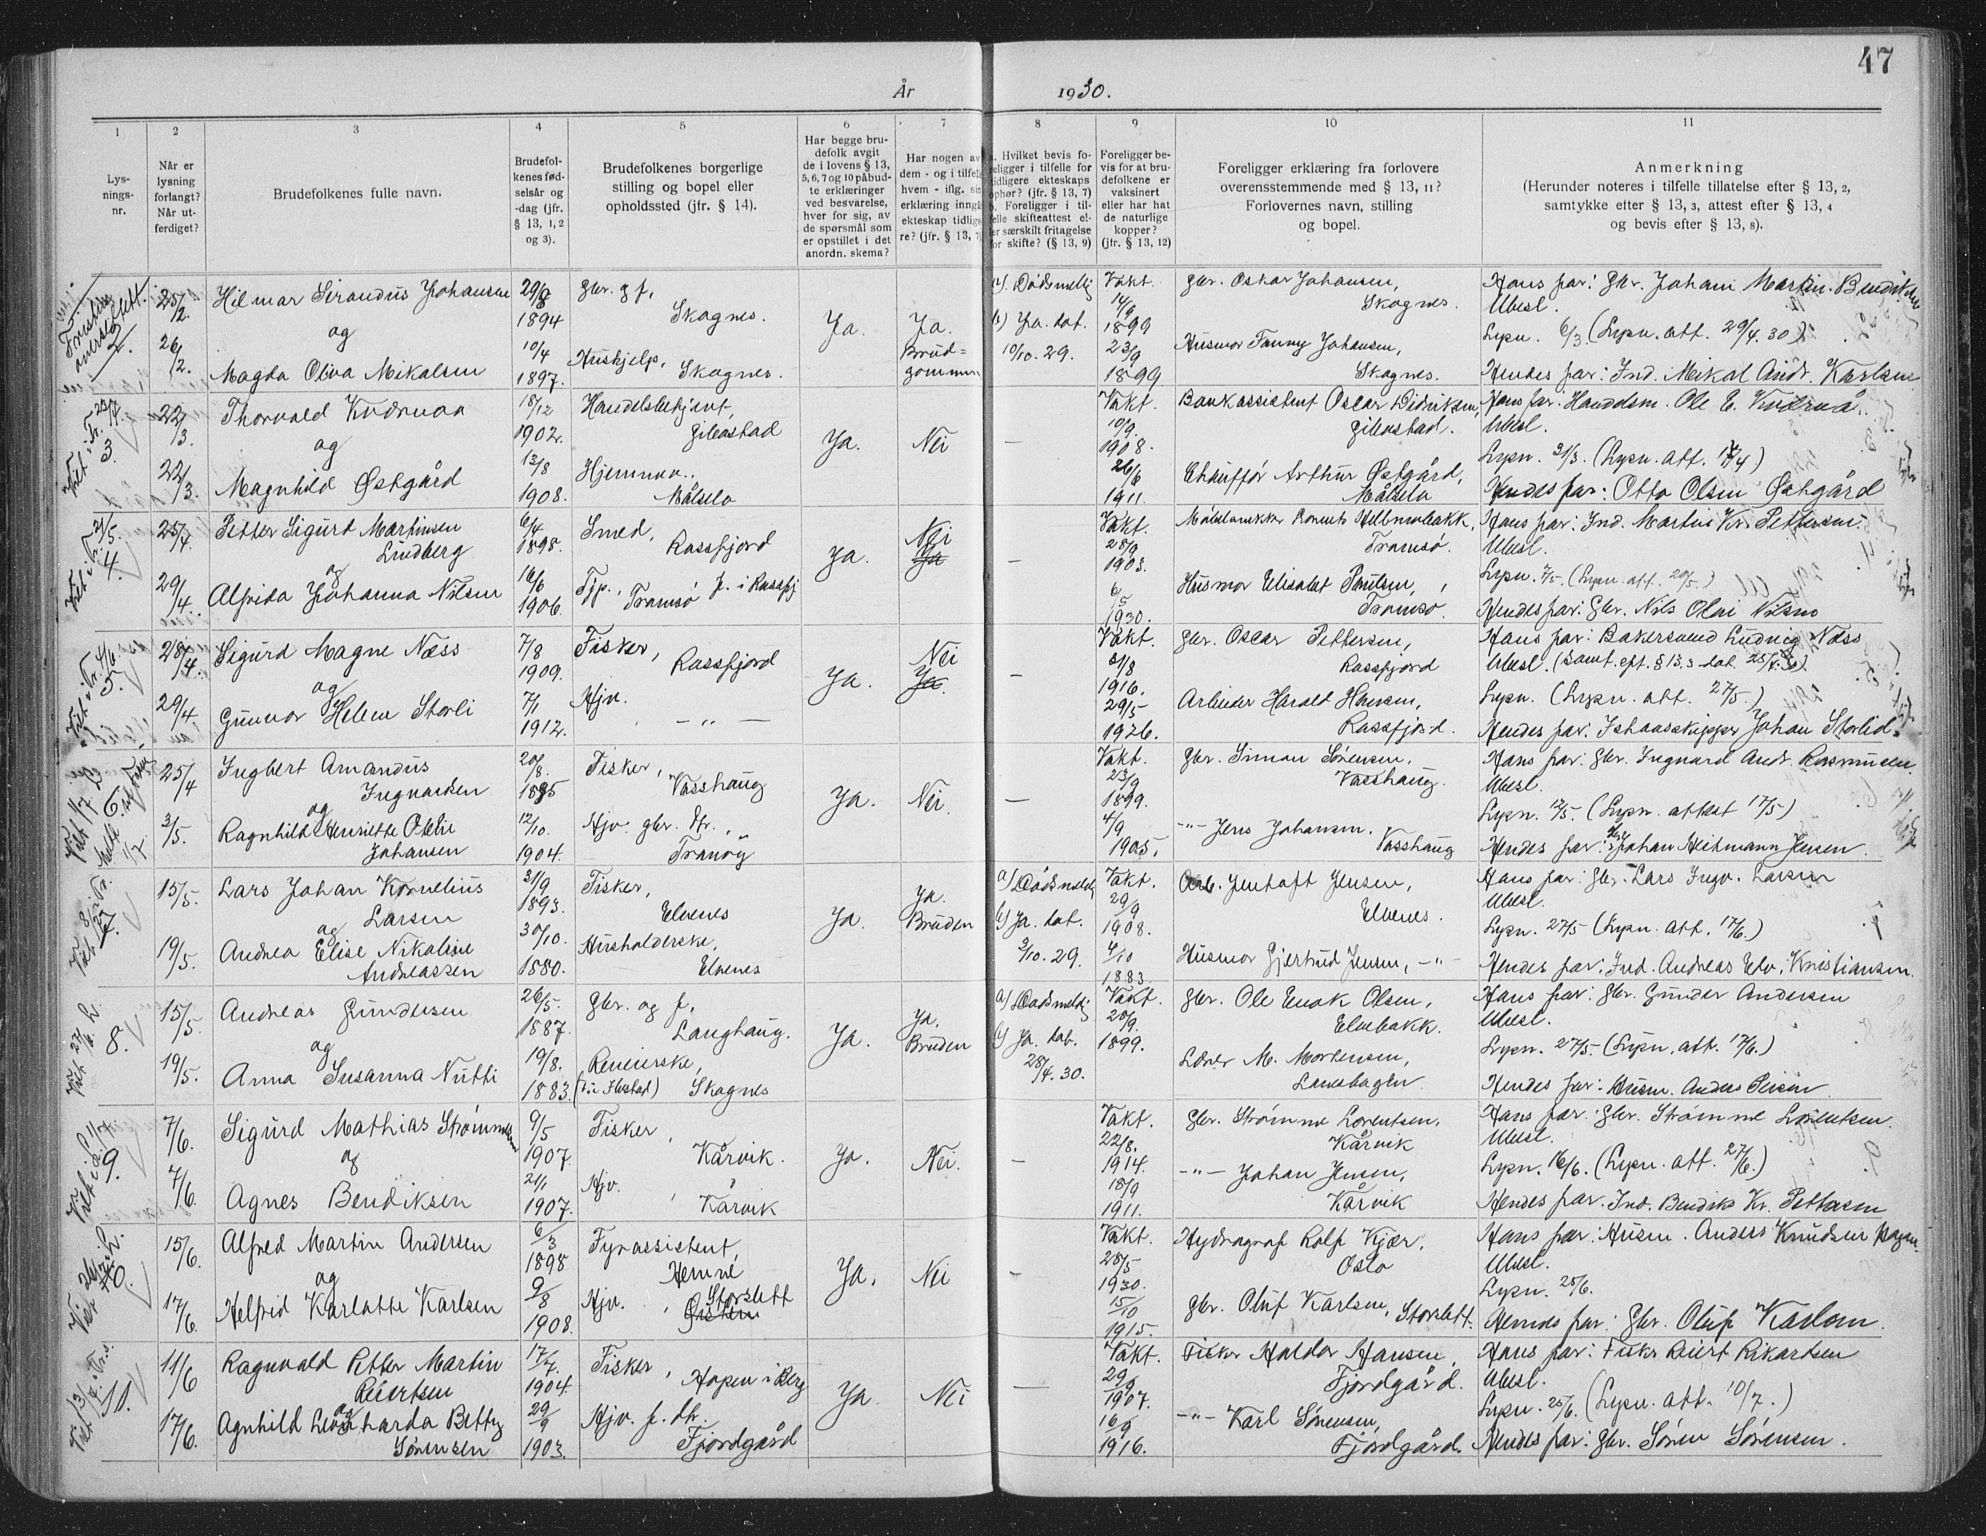 47
År 1930.
1
2
3
4
5
6
7
8
9
10
11
Lys-
nings-
nr.
Når er
lysning
forlangt?
Når ut-
ferdiget?
Brudefolkenes fulle navn.
Brudefol-
kenes fød-
selsår og
-dag (jfr.
§ 13, 1, 2
og 3).
Brudefolkenes borgerlige
stilling og bopel eller
opholdssted (jfr. § 14).
Har begge bru-
defolk avgit
de i lovens § 13,
5, 6, 7 og 10 påbud-
te erklæringer
ved besvarelse,
hver for sig, av
de spørsmål som
er opstillet i det
anordn. skema?
Har nogen av
dem - og i tilfelle
hvem - iflg.
erklæring inngå
ekteskap tidlige
re? (jfr. § 13, 7)
a. Hvilket bevis fo-
religger i tilfelle for
tidligere ekteskaps
ophør? (jfr. § 13, 7)
b. Foreligger i til-
felle skifteattest el-
er særskilt fritagelse
for skifte? (§ 13, 9)
Foreligger be-
vis for at bru-
defolkene er
vaksinert
eller har hat
de naturlige
kopper?
(jfr. § 13, 12)
Foreligger erklæring fra forlovere
overensstemmende med § 13, 11?
Forlovernes navn, stilling
og bopel.
Anmerkning
(Herunder noteres i tilfelle tillatelse efter § 13, 2,
samtykke efter § 13, 3, attest efter § 13, 4
og bevis efter § 13, 8).
2.
25/2.
26/2.
Hilmar Sirandus Johansen
og
Magda Oliva Mikalsen
29/8
1894
10/4
1897.
gbr. g f,
Skognes.
Hushjelp,
Skognes.
Ja.
Ja.
Brud=
gommen
a/. Dødsmeld
b) Ja. dat.
10/10. 29.
Vakt.
14/9
1899
23/9
1899
gbr. Oskar Johansen,
Skognes.
Husmor Fanny Johansen,
Skognes.
Hans far: Gbr. Johan Martin Bendiksen
Ubesl.
Lysn. 6/3. (Lysn. att. 29/4. 30)
Hendes far: Ind. Mikal Andr. Karlsen
3.
22/3.
22/3.
Thorvald Kværnaa
og
Magnhild Østgård
18/12
1902.
13/8
1908.
Handelsbetjent,
Gibostad
Hjemmev..
Målselv
Ja.
Nei
—
Vakt.
10/9
1908.
26/6
1911.
Bankassistent Oscar Didriksen,
Gibostad.
Chauffør Arthur Østgård,
Målselv
Hans far: Handelsm. Ole E. Kværnå.
Ubesl.
Lysn. 31/3. (Lysn. att. 12/4)
Hendes far: Otto Olsen Østgård
4.
25/4.
29/4.
Petter Sigurd Martinsen
Lindberg
og
Alfrida Johanna Nilsen
6/4
1898.
16/6
1906.
Smed,
Rossfjord
Tjp., f. i Rossfj
Tromsø
Ja.
Nei
Ja
—
Vakt.
28/9
1903.
6/5
1930.
Tromsø.
Husmor Elisabet Paulsen,
Tromsø.
Hans far: Ind. Martin Kr. Pettersen.
Ubesl.
Lysn. 7/5. (Lysn. att. 20/5.)
Hendes far: Gbr. Nils Olai Nilsen
5.
28/4.
29/4.
Sigurd Magne Næss
og
Gunvor Helene Storli
7/8
1909.
7/1
1912.
Fisker,
Rossfjord
Hjv.
— „ —
Ja.
Nei
Ja.
—
Vakt.
31/8
1916.
29/5
1926.
gbr. Oscar Pettersen,
Rossfjord
Arbeider Harald Hansen,
Rossfjord.
Hans far: Bakersvend Ludvig Næss
Ubesl. (Samt. eft. § 13. 3 dat. 25/4. 30)
Lysn. (Lysn. att. 27/5.)
Hendes far: Ishavsskipper Johan Storli
6.
25/4
3/5.
Ingbert Amandus
Ingvarsen
og
Ragnhild Henriette Otelie
Johansen
20/8.
1895
12/10.
1904.
Fisker,
Vasshaug
Hjv. gbr. dtr.,
Tranøy
Ja.
Nei.
—
Vakt.
23/9
1899.
4/9
1905.
gbr. Simon Sørensen,
Vasshaug.
-„- Jens Johansen.
Vasshaug
Hans far: gbr. Ingvard Andr. Rasmussen.
Ubesl.
Lysn. 12/5. (Lysn. attest 17/5)
Hendes far: gbr. Johan Heitmann Jensen.
7.
15/5.
19/5.
Lars Johan Kornelius
Larsen
og
Andrea Elise Nikoline
Andreassen
31/9
1893.
30/10.
1880.
Fisker,
Elvenes
Husholderske,
Elvenes
Ja.
Ja.
Bruden
a/ Dødsmeld
b) Ja. dat.
3/10. 29.
Vakt.
29/9
1908.
4/10
1883.
Arb. Jentoft Jensen,
Elvenes.
Husmor Gjertrud Jensen, -„-
Hans far: gbr. Lars Ingv. Larsen
Ubesl.
Lysn. 27/5 (Lysn. att. 17/6.)
Hendes far: Ind. Andreas Edv. Kristiansen.
8.
15/5.
19/5.
Andreas Gundersen
og
Anna Susanna Nutti
26/5.
1887.
19/8.
1883.
gbr. og f,
Langhaug.
Reveierske,
(i Flostad) Skognes
Ja.
Ja.
Bruden
a/ Dødsmeld
b) Ja. dat.
28/4. 30.
Vakt.
20/9.
1899.
gbr. Ole Enok Olsen,
Elvebakk.
Lærer M. Mortensen,
Hans far: gbr. Gunder Andersen
Ubesl.
Lysn. 27/5. (Lysn. att. 17/6.)
Hendes far: Husm. Anders
9.
7/6.
7/6.
Sigurd Mathias Strømmesen
og
Agnes Bendiksen
9/5
1907.
21/1
1907.
Fisker,
Kårvik.
Hjv.,
Kårvik
Ja.
Nei.
—
Vakt.
22/8.
1914.
18/9
1911.
gbr. Strømme Lorentsen,
Kårvik
-„- Johan Jensen,
Kårvik
Hans far: gbr. Strømme Lorentsen.
Ubesl.
Lysn. 16/6. (Lysn. att. 27/6.)
Hendes far. Ind. Bendiks Kr. Pettersen
10.
15/6.
17/6.
Alfred Martin Andersen
og
Helfrid Karlotte Karlsen
6/3
1898
9/8
1908.
Fyrassistent,
Hemne
Hjv., Storslett
Ja.
Nei
-
Vakt.
28/5
1930.
15/10
1915.
Hydrograf Rolf Kjær,
Oslo
gbr. Oluf Karlsen, Storslett.
Hans far: Husm. Anders Knudsen
Ubesl.
Lysn. 25/6.
Hendes far: gbr. Oluf Karlsen.
11.
11/6
17/6.
Ragnvald Petter Martin
Reiertsen
og
Agnhild Leonharda Betty
Sørensen
17/4.
1904.
29/9
1903.
Fisker,
Hopen i Berg
Hjv. f. dtr.
Fjordgård
Ja.
Nei
—
Vakt.
29/9
1907.
16/9
1916.
Fisker Haldor Hansen,
Fjordgård.
-„- Karl Sørensen,
Fjordgård.
Hans far: Fisker Reiert Rikartsen
Ubesl.
Lysn. 25/6. (Lysn. att. 10/7.)
Hendes far: gbr. Søren Sørensen.